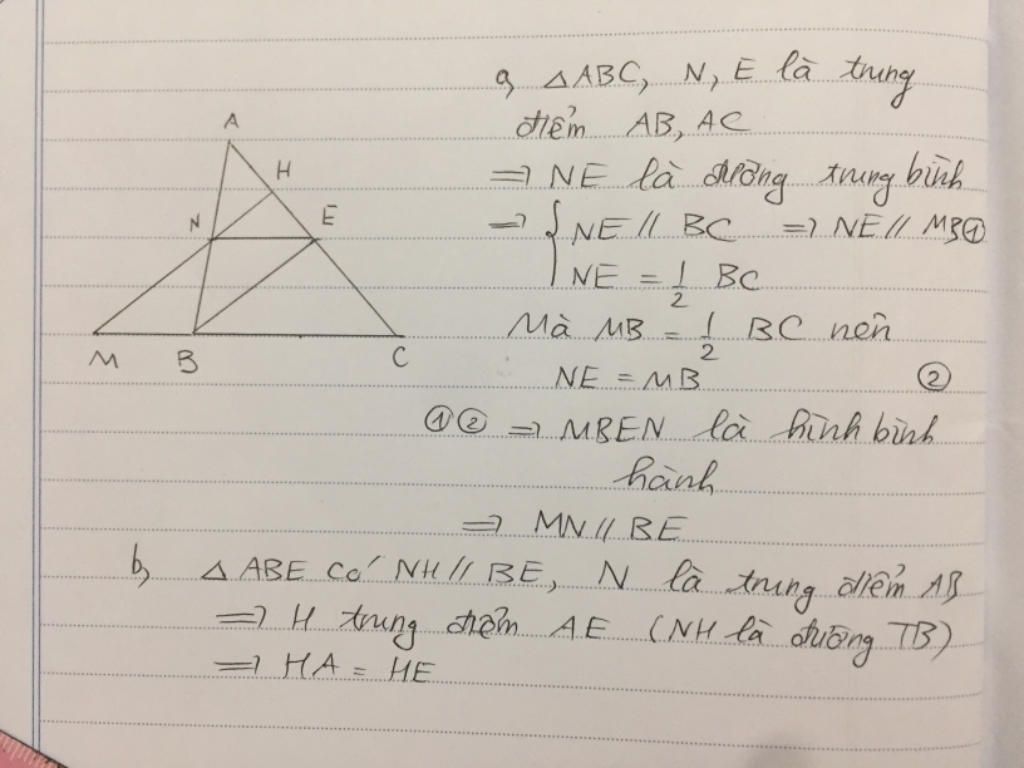 a, △ABC, N, E là trung
điểm AB, AC
⇒ NE là đường trung bình
⇒ { NE // BC ⇒ NE // MB ①
NE = 1/2 BC
Mà MB = 1/2 BC nên
NE = MB ②
① ② ⇒ MBEN là hình bình
hành
⇒ MN // BE
b, △ ABE có NH // BE, N là trung điểm AB
⇒ H trung điểm AE (NH là đường TB)
⇒ HA = HE
A
H
N E
M B C